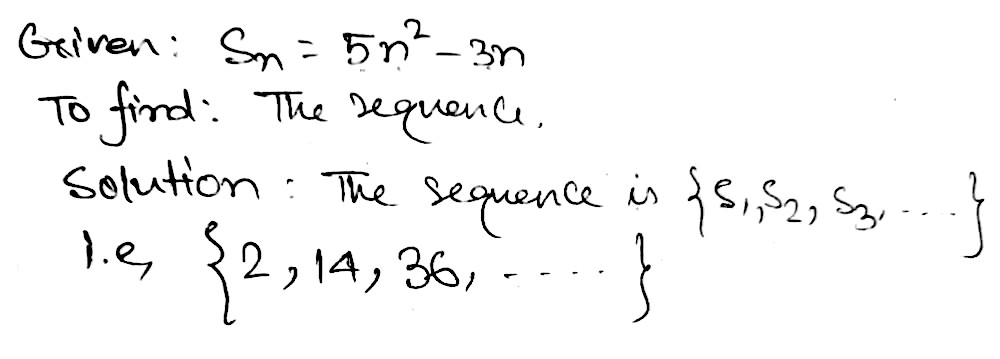 Given: Sn = 5n² - 3n
To find: The sequence.
Solution: The sequence is {S₁, S₂, S₃, ....}
I.e, {2, 14, 36, .....}